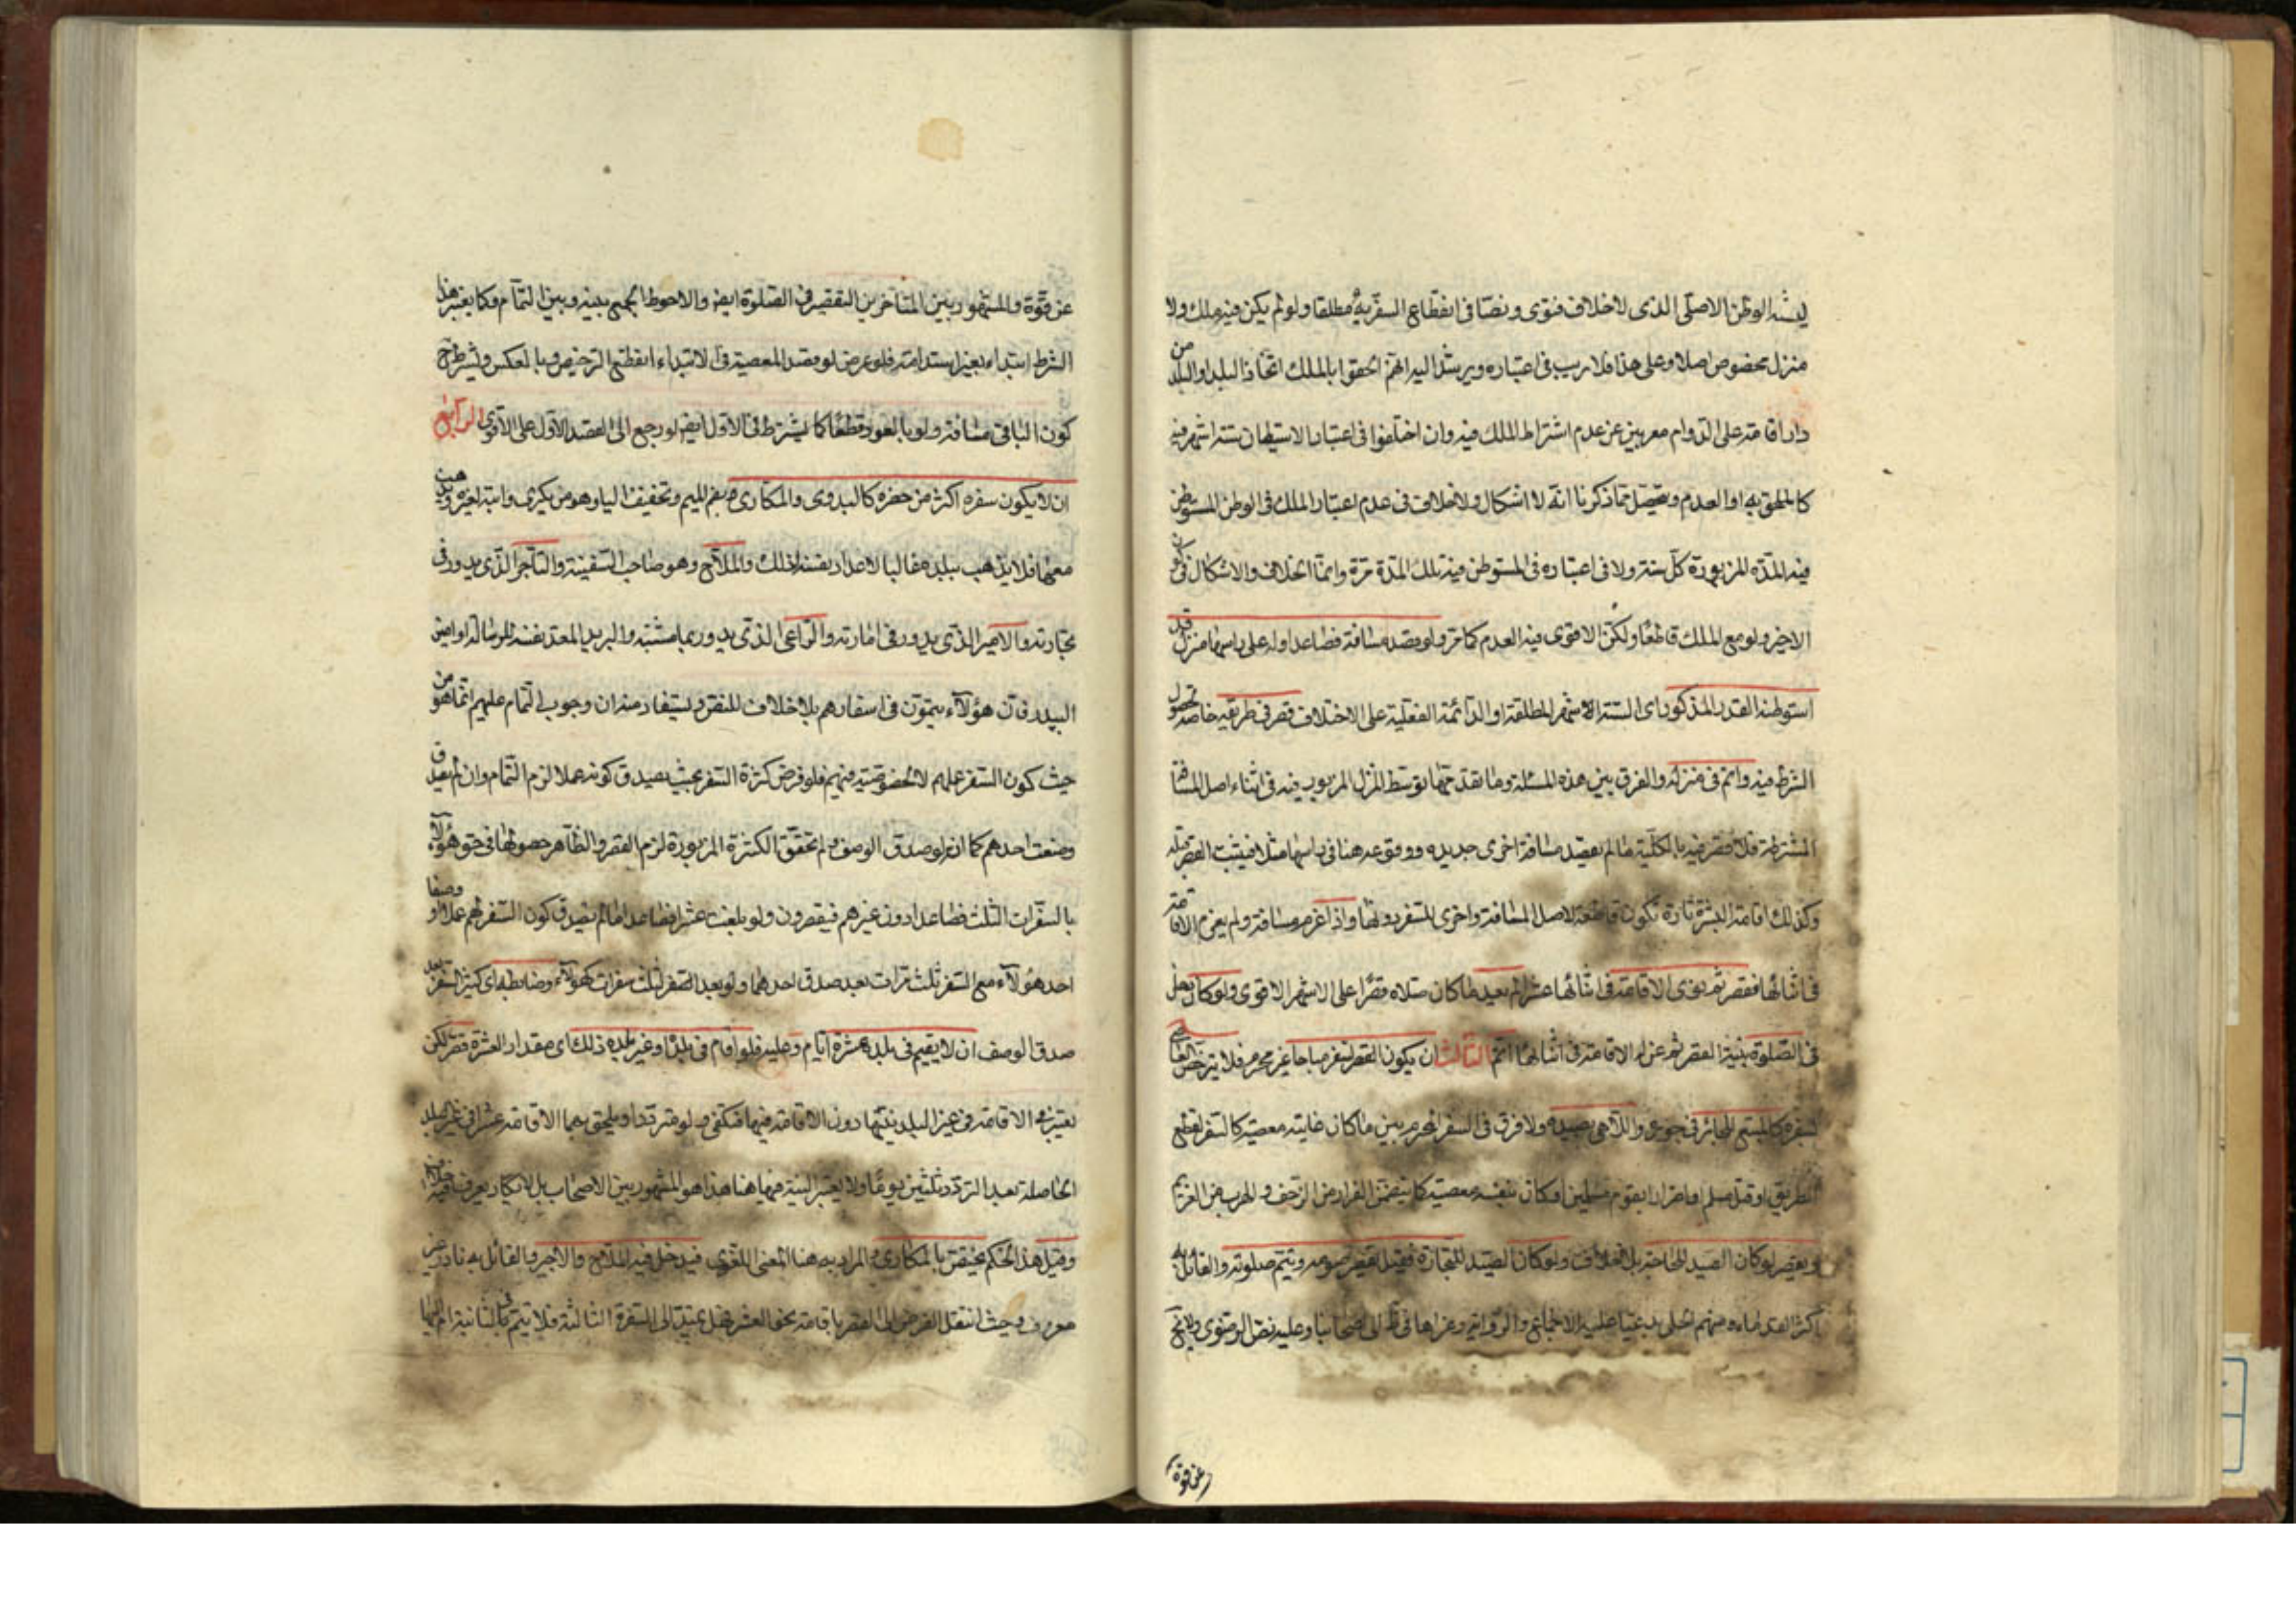 يشبه الوطن الاصلی الذی لاخلاف فتوی ونصا فی انقطاع السفر به مطلقا ولو لم يكن فيه ملك ولا
منزل مخصوص اصلا وعلی هذا فلا ريب فی اعتباره ويرشد اليه انهم الحقوا بالملك اتخاذ البلد او البلدين
دار اقامته علی الدوام معربين عن عدم اشتراط الملك فيه وان اختلفوا فی اعتبار الاستيطان ستة اشهر فيه
كالملحق به او العدم ويتحصل مما ذكرنا انه لا اشكال ولاخلاف فی عدم اعتبار الملك فی الوطن المستوطن
فيه المدة المزبورة كل سنة ولا فی اعتباره فی المستوطن فيه تلك المدة مرة وانما الخلاف والاشكال فی كون
الاخير ولو مع الملك قاطعا ولكن الاقوی فيه العدم كما مر ولو قصد مسافة فصاعدا وله علی راسها منزل قد
استوطنه القدر المذكور ای الستة الاشهر المطلقة او الدائمة الفعلية علی الاختلاف قصر فی طريقه خاصة لحصول
الشرط فيه واتم فی منزله والفرق بين هذه المسئلة وما تقدمها توسط المنزل المزبور فيه فی اثناء اصل المسافة
المشترطة فلا قصر فيه بالكلية ما لم يقصد مسافة اخری جديدة ووقوعه هنا فی راسها مثلا فيثبت القصر قبله
وكذلك اقامة العشرة تارة تكون قاطعة لاصل المسافة واخری للسفر دونها واذا عزم مسافة ولم يعزم الاقامة
فی اثنائها فقصر ثم نوی الاقامة فی اثنائها عشرا لم يعد ما كان صلاه قصرا علی الاشهر الاقوی ولو كان دخل
فی الصلوة بنية القصر ثم عن له الاقامة فی اثنائها اتم الثالث ان يكون السفر مباحا غير محرم فلا يترخص العاصی
لسفره كالمتبع للجائر فی جوره واللاهی بصيده ولا فرق فی السفر المحرم بين ما كان غايته معصية كالسفر لقطع
الطريق او قتل مسلم او اضرارا بقوم مسلمين او كان بنفسه معصية كا الفرار من الزحف والهرب من الغريم
ويقصر لو كان الصيد للحاجة بلاخلاف ولو كان الصيد للتجارة قيل يقصر صومه ويتم صلوته والقائل به
اكثر القدماء ومنهم الحلی مدعيا عليه الاجماع والرواية وعزاها فی ط الی اصحابنا وعليه نص الرضوی ولايخ
عن قوة
عن قوة والمشهور بين المتاخرين التقصير فی الصلوة ايضا والاحوط الجمع بينه وبين التمام وكما يعتبر هذا
الشرط ابتداء يعتبر استدامته فلو عرض له قصد المعصية فی الابتداء انقطع الترخيص وبالعكس ويشترط ح
كون الباقی مسافة ولو بالعود قطعا كما يشترط فی الاول ايضا لو رجع الی القصد الاول علی الاقوی الرابع
ان لا يكون سفره اكثر من حضره كالبدوی والمكاری بضم الميم وتخفيف الياء وهو من يكری دابته لغيره ويذهب
معها فلا يذهب ببلده غالبا لاعداد نفسه لذلك والملاح وهو صاحب السفينة والتاجر الذی يدور فی
تجارته والامير الذی يدور فی امارته والراعی الذی يدور بماشيته والبريد المعد نفسه للرسالة او امين
البيدر فان هؤلاء يتمون فی اسفارهم بلاخلاف للنص ويستفاد منه ان وجوب التمام عليهم انما هو من
حيث كون السفر عملهم لا لخصوصية فيهم فلو فرض كثرة السفر بحيث يصدق كونه عملا لزم التمام وان لم يصدق
وصف احدهم كما انه لو صدق الوصف ولم تحقق الكثرة المزبورة لزم القصر والظاهر حصولها فی حق هؤلاء
بالسفرات الثلث فصاعدا دون غيرهم فيقصرون ولو بلغت عشرا فصاعدا ما لم يصدق كون السفر لهم عملا او وصفا
احد هؤلاء مع السفر ثلث مرات بعد صدق احدهما ولو بعد السفر ثلث سفرات كهؤلاء وضابطه ای كثير السفر بعد
صدق الوصف ان لا يقيم فی بلده عشرة ايام وعليه فلو اقام فی بلده او غير بلده ذلك ای مقدار العشرة قصر لكن
يعتبر فی الاقامة فی غير البلد نيتها دون الاقامة فيها فتكفی ولو مترددا ويلحق بهما الاقامة عشرا فی غير بلده
الحاصلة بعد التردد ثلثين يوما ولا يعتبر النية فيها هنا هذا هو المشهور بين الاصحاب بل لا يكاد يعرف فيه خلاف
وقيل هذا الحكم مختص بالمكاری والمراد به هنا المعنی اللغوی فيدخل فيه الملاح والاجير والقائل به نادر غير
معروف وحيث انتقل الفرض الی القصر باقامة نحو العشر فهل يمتد الی السفرة الثالثة فلا يتم فی الثانية ام